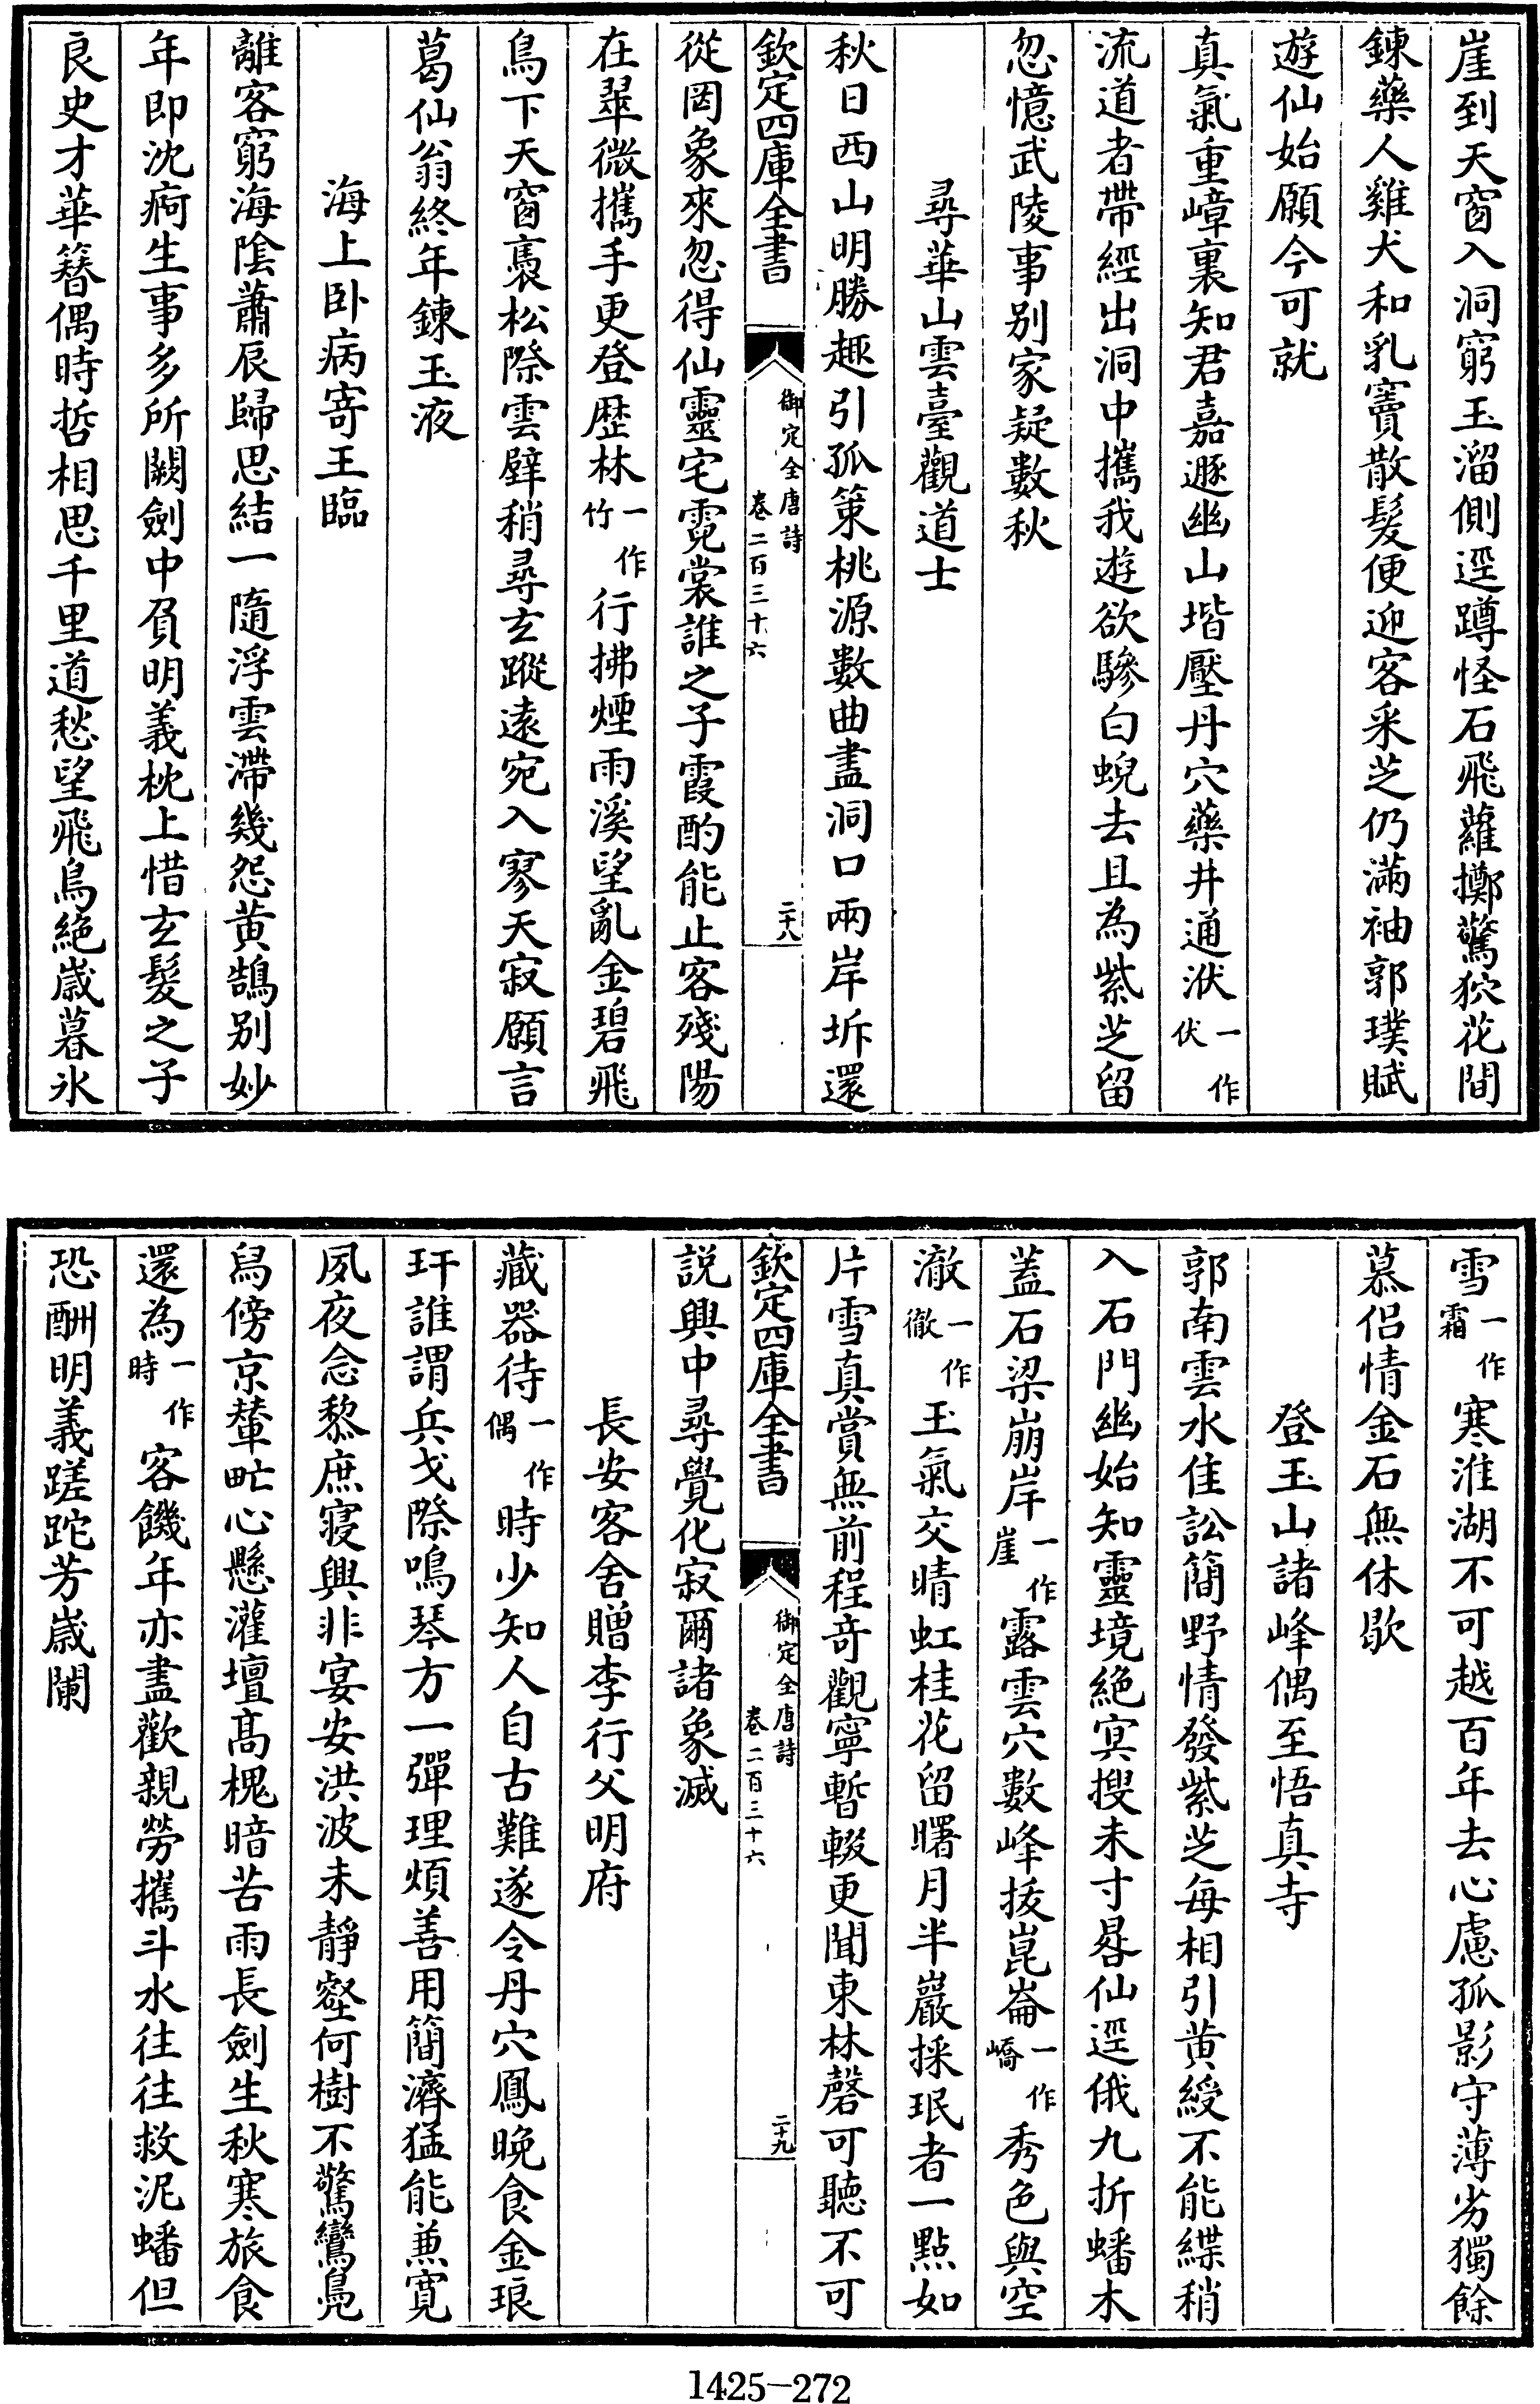 崖到天窗入洞窮玉溜側逕蹲怪石飛蘿擲驚狖花間
鍊藥人雞犬和乳竇散髮便迎客采芝仍滿袖郭璞賦
遊仙始願今可就
真氣重嶂裏知君嘉遯幽山堦壓丹穴藥井通洑一作伏
流道者帶經出洞中攜我遊欲驂白蜺去且為紫芝留
忽憶武陵事别家疑數秋
尋華山雲臺觀道士
秋日西山明勝趣引孤策桃源數曲盡洞口兩岸坼還
欽定四庫全書 御定全唐詩 卷二百三十六 二十八
從罔象來忽得仙靈宅霓裳誰之子霞酌能止客殘陽
在翠微攜手更登歴林一作竹行拂煙雨溪望亂金碧飛
鳥下天窗裊松際雲壁稍尋玄蹤遠宛入寥天寂願言
葛仙翁終年鍊玉液
海上卧病寄王臨
離客窮海隂蕭辰歸思結一隨浮雲滯幾怨黄鵠别妙
年即沈痾生事多所闕劍中負明義枕上惜玄髮之子
良史才華簪偶時哲相思千里道愁望飛鳥絶歳暮氷
雪一作霜寒淮湖不可越百年去心慮孤影守薄劣獨餘
慕侣情金石無休歇
登玉山諸峰偶至悟真寺
郭南雲水佳訟簡野情發紫芝每相引黄綬不能緤稍
入石門幽始知靈境絶冥搜未寸晷仙逕俄九折蟠木
蓋石梁崩岸一作崖露雲穴數峰拔崑崙一作嶠秀色與空
澈一作徹玉氣交晴虹桂花留曙月半巖採珉者一點如
片雪真賞無前程奇觀寧暫輟更聞東林磬可聽不可
欽定四庫全書 御定全唐詩 卷二百三十六 二十九
説興中尋覺化寂爾諸象滅
長安客舍贈李行父明府
藏器待一作偶時少知人自古難遂令丹穴鳳晚食金琅
玕誰謂兵戈際鳴琴方一彈理煩善用簡濟猛能兼寛
夙夜念黎庶寢興非宴安洪波未靜壑何樹不驚鸞鳧
舄傍京輦甿心懸灌壇髙槐暗苦雨長劍生秋寒旅食
還為一作時客饑年亦盡歡親勞攜斗水往往救泥蟠但
恐酬明義蹉跎芳嵗闌
1425-272